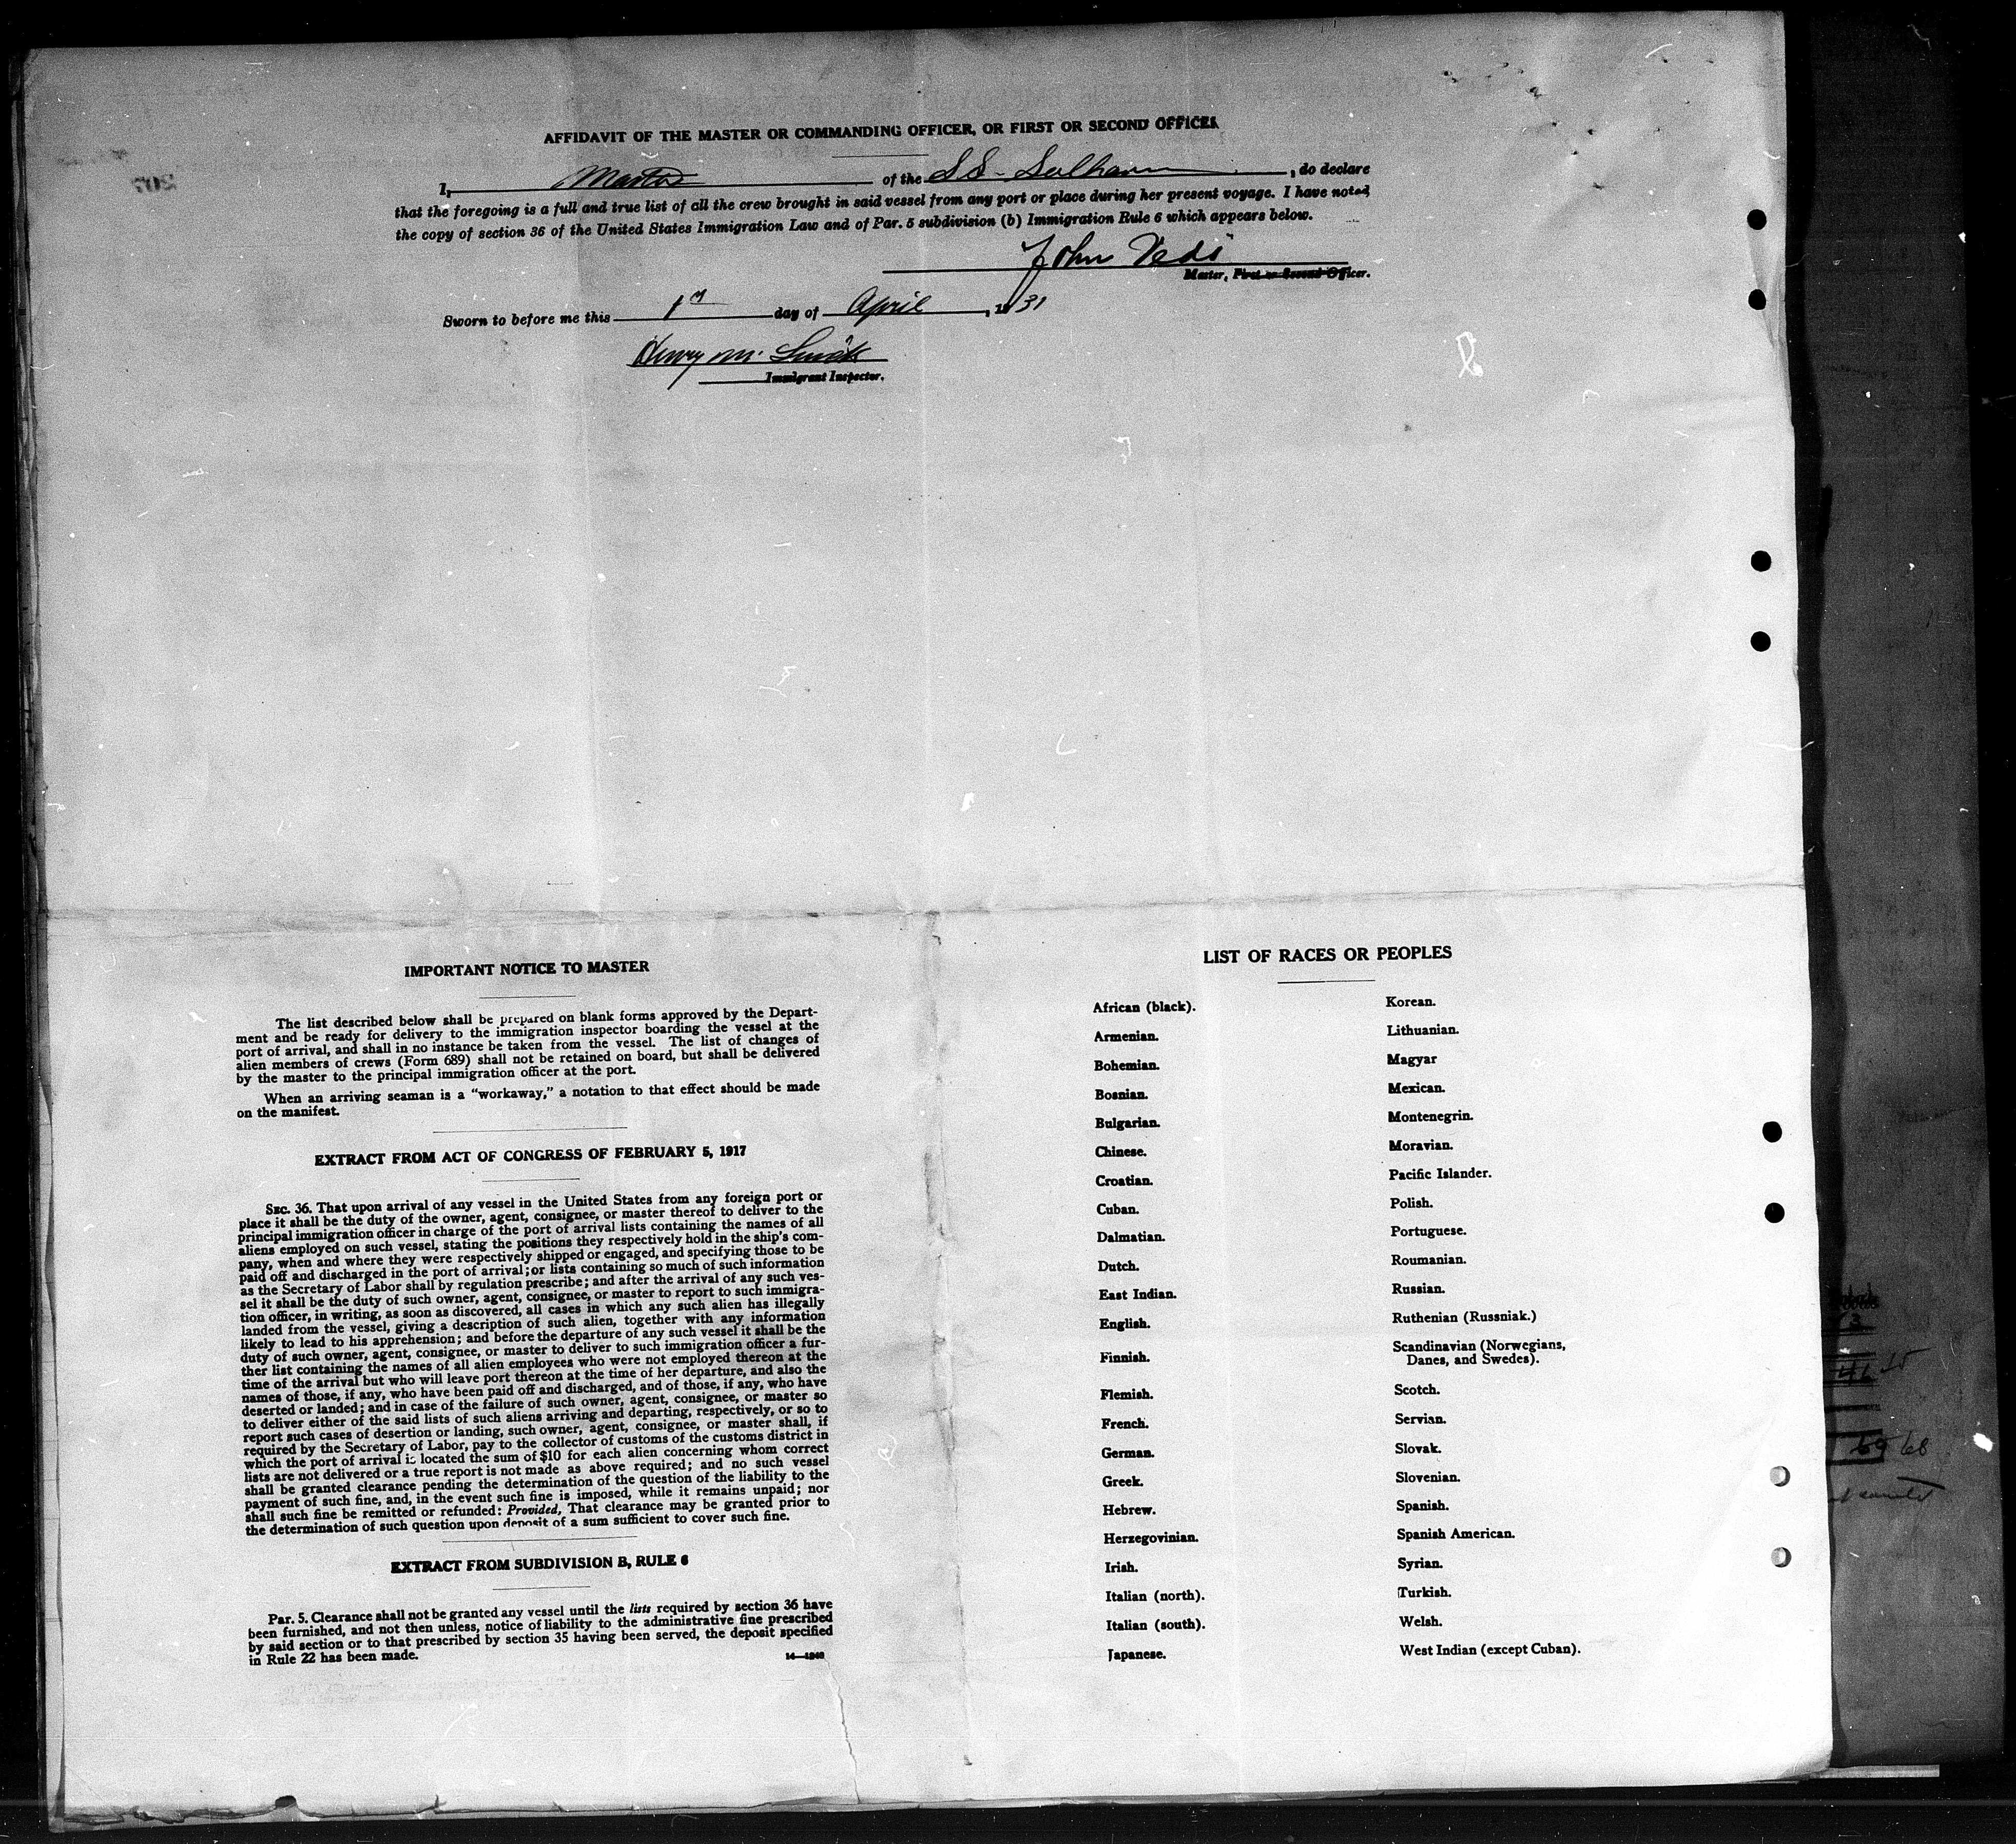 AFFIDAVIT OF THE MASTER OR COMMANDING OFFICER, OR FIRST OR SECOND OFFICER
I, Master of the SS- , do declare
that the foregoing is a full and true list of all the crew brought in said vessel from any port or place during her present voyage. I have noted
the copy of section 36 of the United States Immigration Law and of Par. 5 subdivision (b) Immigration Rule 6 which appears below.
John
Master, First or Second Officer.
Sworn to before me this 1st day of April, 1931
Henry M.
Immigrant Inspector.
IMPORTANT NOTICE TO MASTER
The list described below shall be prepared on blank forms approved by the Depart-
ment and be ready for delivery to the immigration inspector boarding the vessel at the
port of arrival, and shall in no instance be taken from the vessel. The list of changes of
alien members of crews (Form 689) shall not be retained on board, but shall be delivered
by the master to the principal immigration officer at the port.
When an arriving seaman is a "workaway," a notation to that effect should be made
on the manifest.
EXTRACT FROM ACT OF CONGRESS OF FEBRUARY 5, 1917
SEC. 36. That upon arrival of any vessel in the United States from any foreign port or
place it shall be the duty of the owner, agent, consignee, or master thereof to deliver to the
principal immigration officer in charge of the port of arrival lists containing the names of all
aliens employed on such vessel, stating the positions they respectively hold in the ship's com-
pany, when and where they were respectively shipped or engaged, and specifying those to be
paid off and discharged in the port of arrival; or lists containing so much of such information
as the Secretary of Labor shall by regulation prescribe; and after the arrival of any such ves-
sel it shall be the duty of such owner, agent, consignee, or master to report to such immigra-
tion officer, in writing, as soon as discovered, all cases in which any such alien has illegally
landed from the vessel, giving a description of such alien, together with any information
likely to lead to his apprehension; and before the departure of any such vessel it shall be the
duty of such owner, agent, consignee, or master to deliver to such immigration officer a fur-
ther list containing the names of all alien employees who were not employed thereon at the
time of the arrival but who will leave port thereon at the time of her departure, and also the
names of those, if any, who have been paid off and discharged, and of those, if any, who have
deserted or landed; and in case of the failure of such owner, agent, consignee, or master so
to deliver either of the said lists of such aliens arriving and departing, respectively, or so to
report such cases of desertion or landing, such owner, agent, consignee, or master shall, if
required by the Secretary of Labor, pay to the collector of customs of the customs district in
which the port of arrival is located the sum of $10 for each alien concerning whom correct
lists are not delivered or a true report is not made as above required; and no such vessel
shall be granted clearance pending the determination of the question of the liability to the
payment of such fine, and, in the event such fine is imposed, while it remains unpaid; nor
shall such fine be remitted or refunded: Provided, That clearance may be granted prior to
the determination of such question upon deposit of a sum sufficient to cover such fine.
EXTRACT FROM SUBDIVISION B, RULE 6
Par. 5. Clearance shall not be granted any vessel until the lists required by section 36 have
been furnished, and not then unless, notice of liability to the administrative fine prescribed
by said section or to that prescribed by section 35 having been served, the deposit specified
in Rule 22 has been made.
14—1240
LIST OF RACES OR PEOPLES
African (black).
Armenian.
Bohemian.
Bosnian.
Bulgarian.
Chinese.
Croatian.
Cuban.
Dalmatian.
Dutch.
East Indian.
English.
Finnish.
Flemish.
French.
German.
Greek.
Hebrew.
Herzegovinian.
Irish.
Italian (north).
Italian (south).
Japanese.
Korean.
Lithuanian.
Magyar
Mexican.
Montenegrin.
Moravian.
Pacific Islander.
Polish.
Portuguese.
Roumanian.
Russian.
Ruthenian (Russniak.)
Scandinavian (Norwegians,
Danes, and Swedes).
Scotch.
Servian.
Slovak.
Slovenian.
Spanish.
Spanish American.
Syrian.
Turkish.
Welsh.
West Indian (except Cuban).